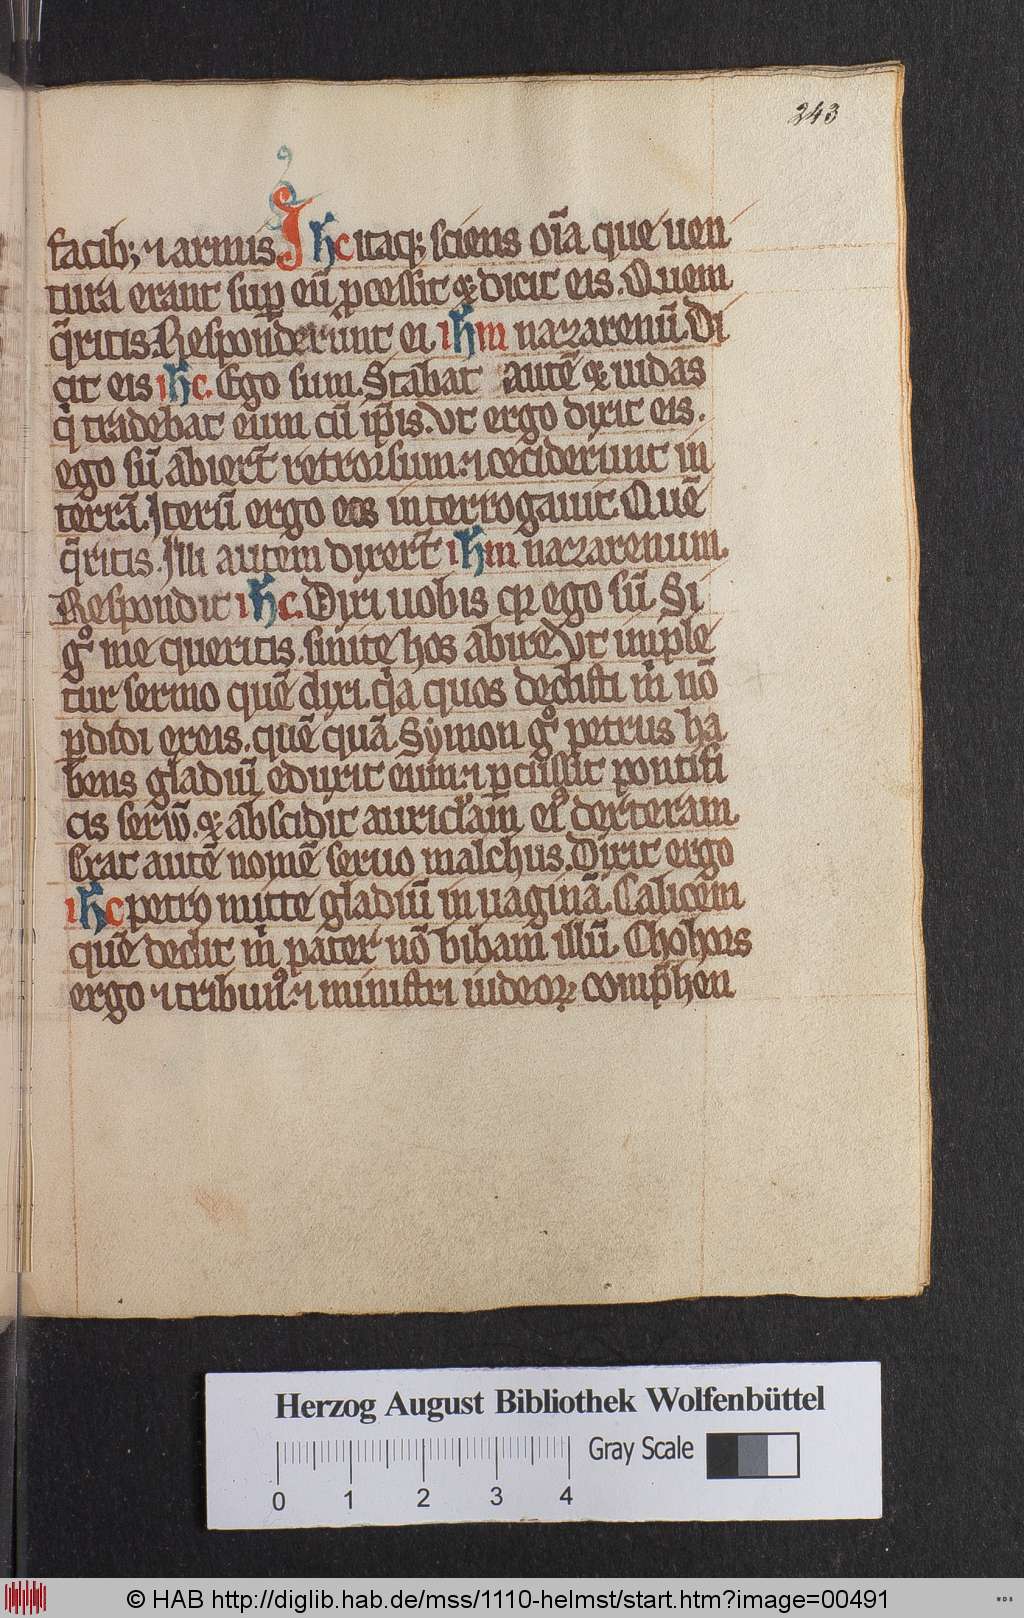 243
facib; ⁊ armis Ihc itaq; sciens oīa que uen
tura erant sup eū pcessit ⁊ dicit eis. Quem
q̄ritis Responderūnt ei. ihm nazarenū. Di
cit eis ihc. Ego sum. Stabat autē ⁊ iudas
qͥ tradebat eum cū ip̄is. Vt ergo dixit eis.
ego sū abiert̄ retrorsum. ⁊ ceciderunt in
terrā. Iterū ergo eos interrogauit. Quē
q̄ritis. Illi autem dixert̄ ihm nazarenum.
Respondit ihc. Dixi uobis qꝛ ego sū. Si
gͦ me queritis. sinite hos abire. Vt imple
tur sermo quē dixi. qͥa quos dedisti mͥ nō
pdidi ex eis. quē quā. Symon gͦ petrus ha
bens gladiū eduxit eum. ⁊ pcussit pontifi
cis serw̄. ⁊ abscidit auriclam eiꝰ dexteram.
Erat autē nomē seruo malchus. Dixit ergo
ihc petro mitte gladiū in uaginā. Calicem
quē dedit mͥ pater nō bibam illū. Chohors
ergo ⁊ tribunꝰ. ⁊ ministri iudeoꝝ comp̄hen
Herzog August Bibliothek Wolfenbüttel
Gray Scale
0 1 2 3 4
© HAB http://diglib.hab.de/mss/1110-helmst/start.htm?image=00491